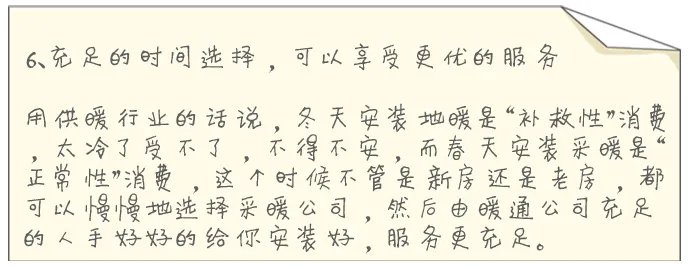 6、充足的时间选择，可以享受更优的服务
用供暖行业的话说，冬天安装地暖是“补救性”消费
，太冷了受不了，不得不安，而春天安装采暖是“
正常性”消费，这个时候不管是新房还是老房，都
可以慢慢地选择采暖公司，然后由暖通公司充足
的人手好好的给你安装好，服务更充足。